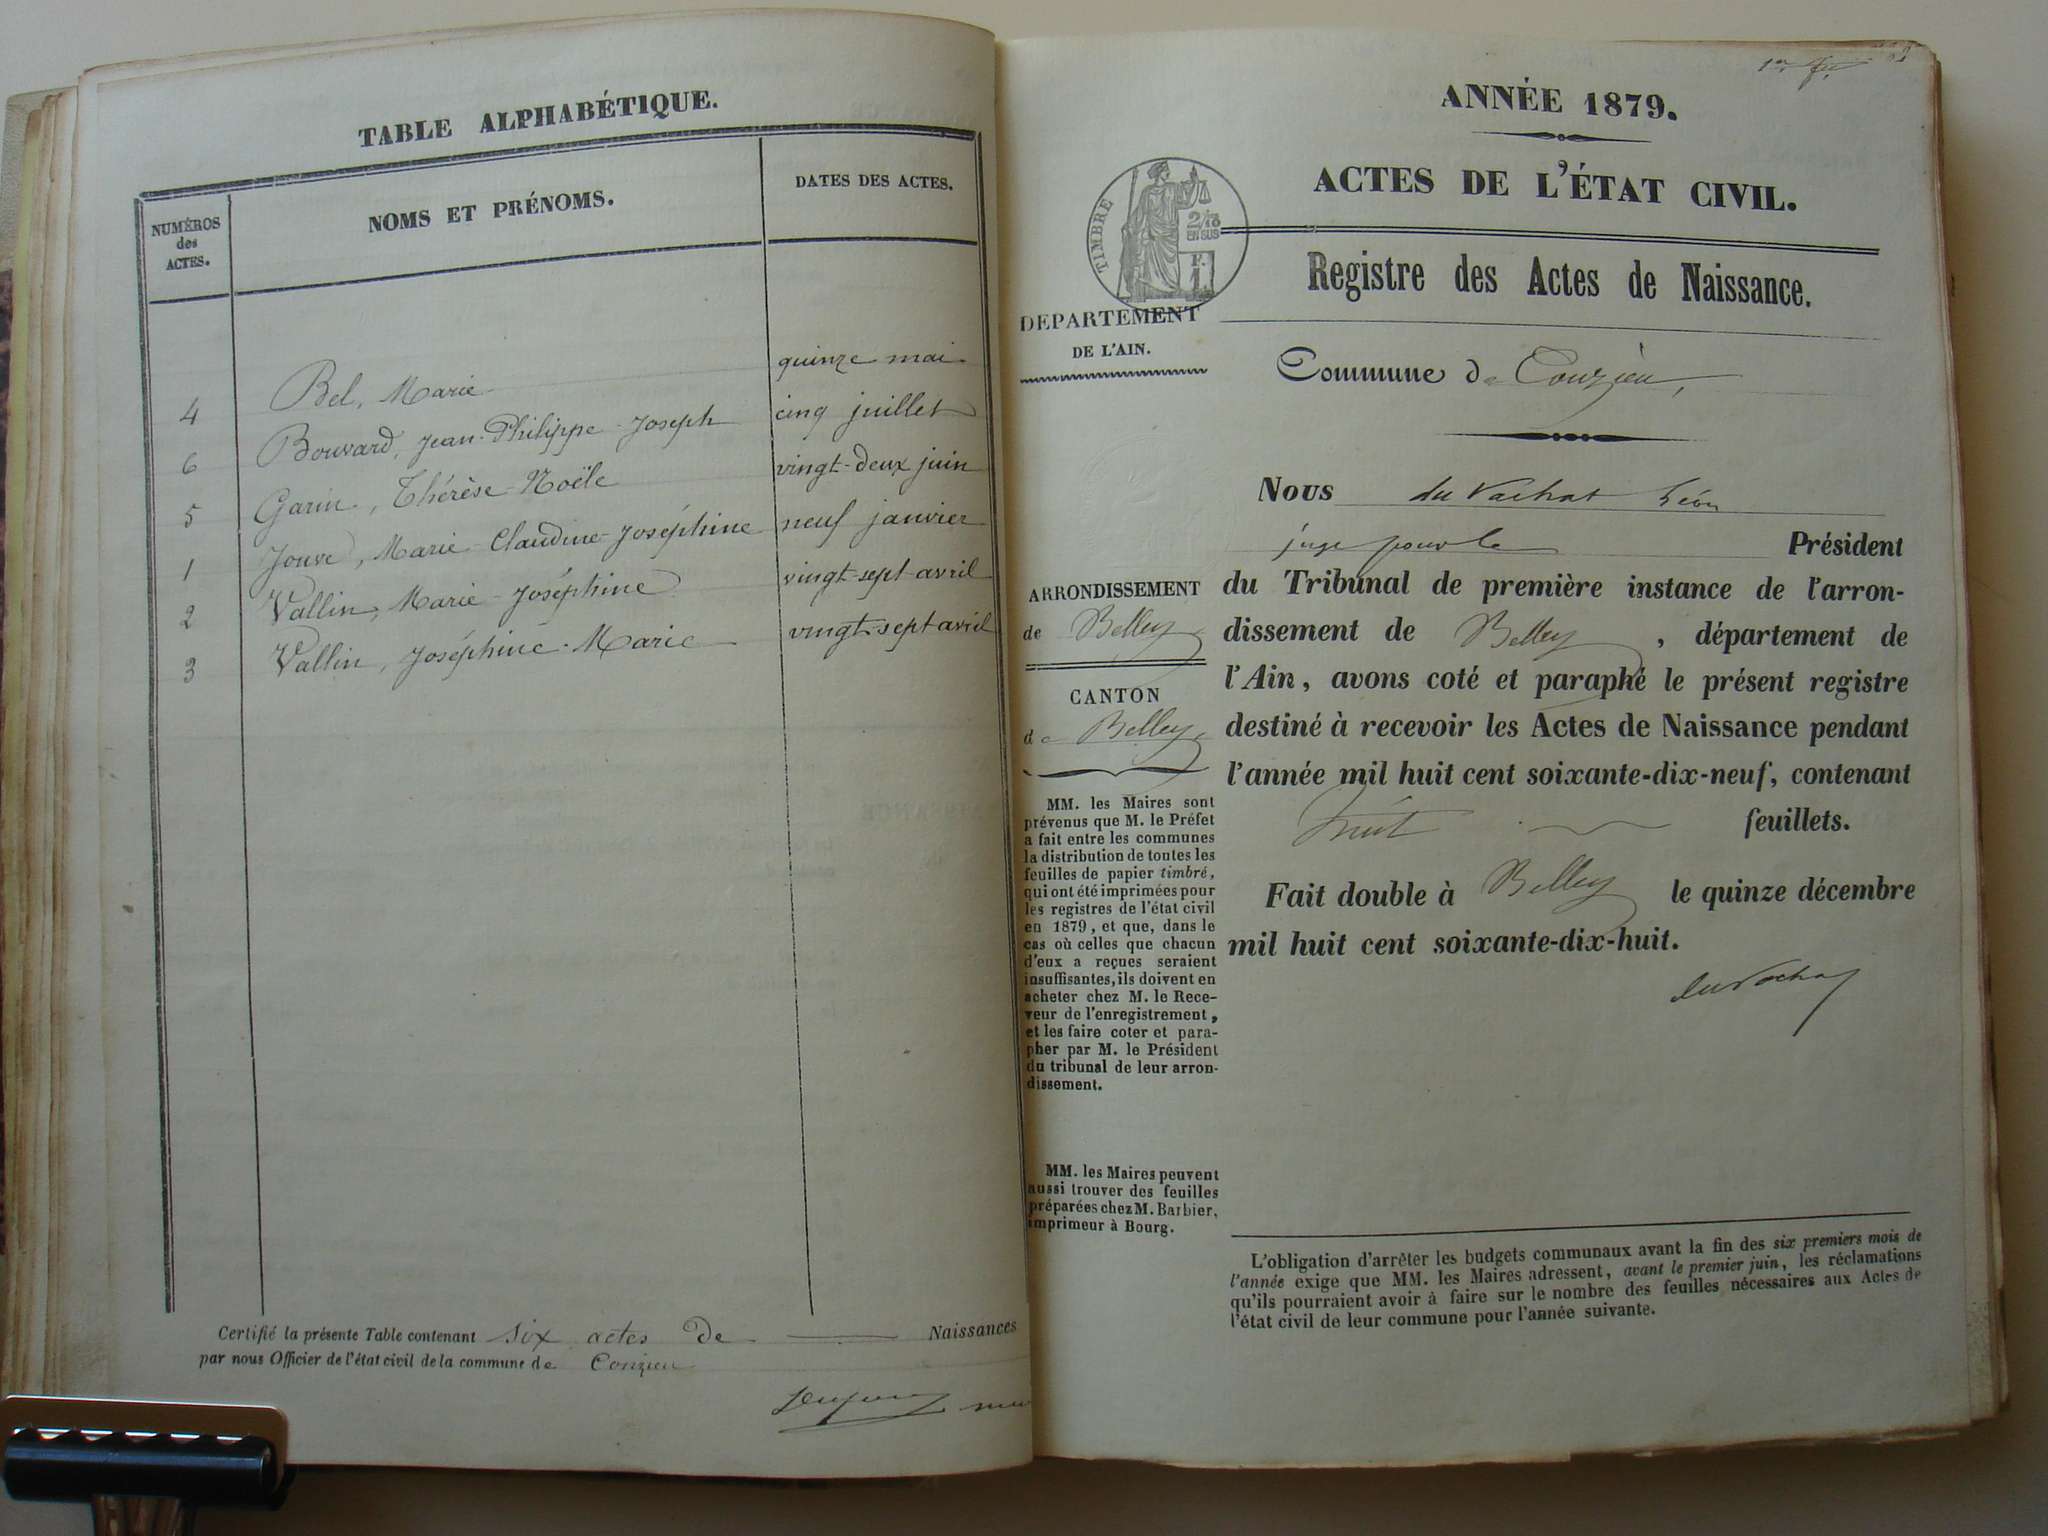 TABLE ALPHABÉTIQUE.
NUMÉROS des ACTES.
NOMS ET PRÉNOMS.
DATES DES ACTES.
4 Bel, Marie quinze mai
6 Bouvard, Jean-Philippe-Joseph cinq juillet
5 Garin, Thérèse-Noële vingt-deux juin
1 Jouve, Marie-Claudine-Joséphine neuf janvier
2 Vallin, Marie-Joséphine vingt-sept avril
3 Vallin, Joséphine-Marie vingt-sept avril
Certifié la présente Table contenant six actes de Naissances
par nous Officier de l'état civil de la commune de Conzieu
1er
ANNÉE 1879.
ACTES DE L'ÉTAT CIVIL.
TIMBRE
2/10
EN SUS
F. 1
Registre des Actes de Naissance.
DEPARTEMENT
DE L'AIN.
Commune de Conzieu,
Nous du Vachat Léon
juge pour le Président
du Tribunal de première instance de l'arron-
dissement de Belley, département de
l'Ain, avons coté et paraphé le présent registre
destiné à recevoir les Actes de Naissance pendant
l'année mil huit cent soixante-dix-neuf, contenant
huit feuillets.
Fait double à Belley le quinze décembre
mil huit cent soixante-dix-huit.
du Vachat
ARRONDISSEMENT
de Belley
CANTON
de Belley
MM. les Maires sont
prévenus que M. le Préfet
a fait entre les communes
la distribution de toutes les
feuilles de papier timbré,
qui ont été imprimées pour
les registres de l'état civil
en 1879, et que, dans le
cas où celles que chacun
d'eux a reçues seraient
insuffisantes, ils doivent en
acheter chez M. le Rece-
veur de l'enregistrement,
et les faire coter et para-
pher par M. le Président
du tribunal de leur arron-
dissement.
MM. les Maires peuvent
aussi trouver des feuilles
préparées chez M. Barbier,
imprimeur à Bourg.
L'obligation d'arrêter les budgets communaux avant la fin des six premiers mois de
l'année exige que MM. les Maires adressent, avant le premier juin, les réclamations
qu'ils pourraient avoir à faire sur le nombre des feuilles nécessaires aux Actes de
l'état civil de leur commune pour l'année suivante.